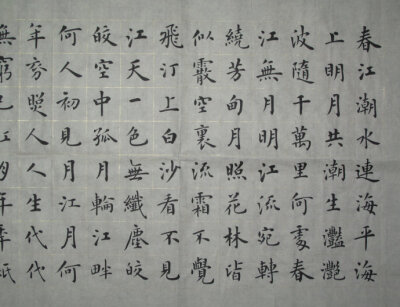 春江潮水連海平海
上明月共潮生灩灧
波隨千萬里何處春
江無月明江流宛轉
繞芳甸月照花林皆
似霰空裏流霜不覺
飛汀上白沙看不見
江天一色無纖塵皎
皎空中孤月輪江畔
何人初見月江月何
年照人人生代代
無窮已江月年年祇